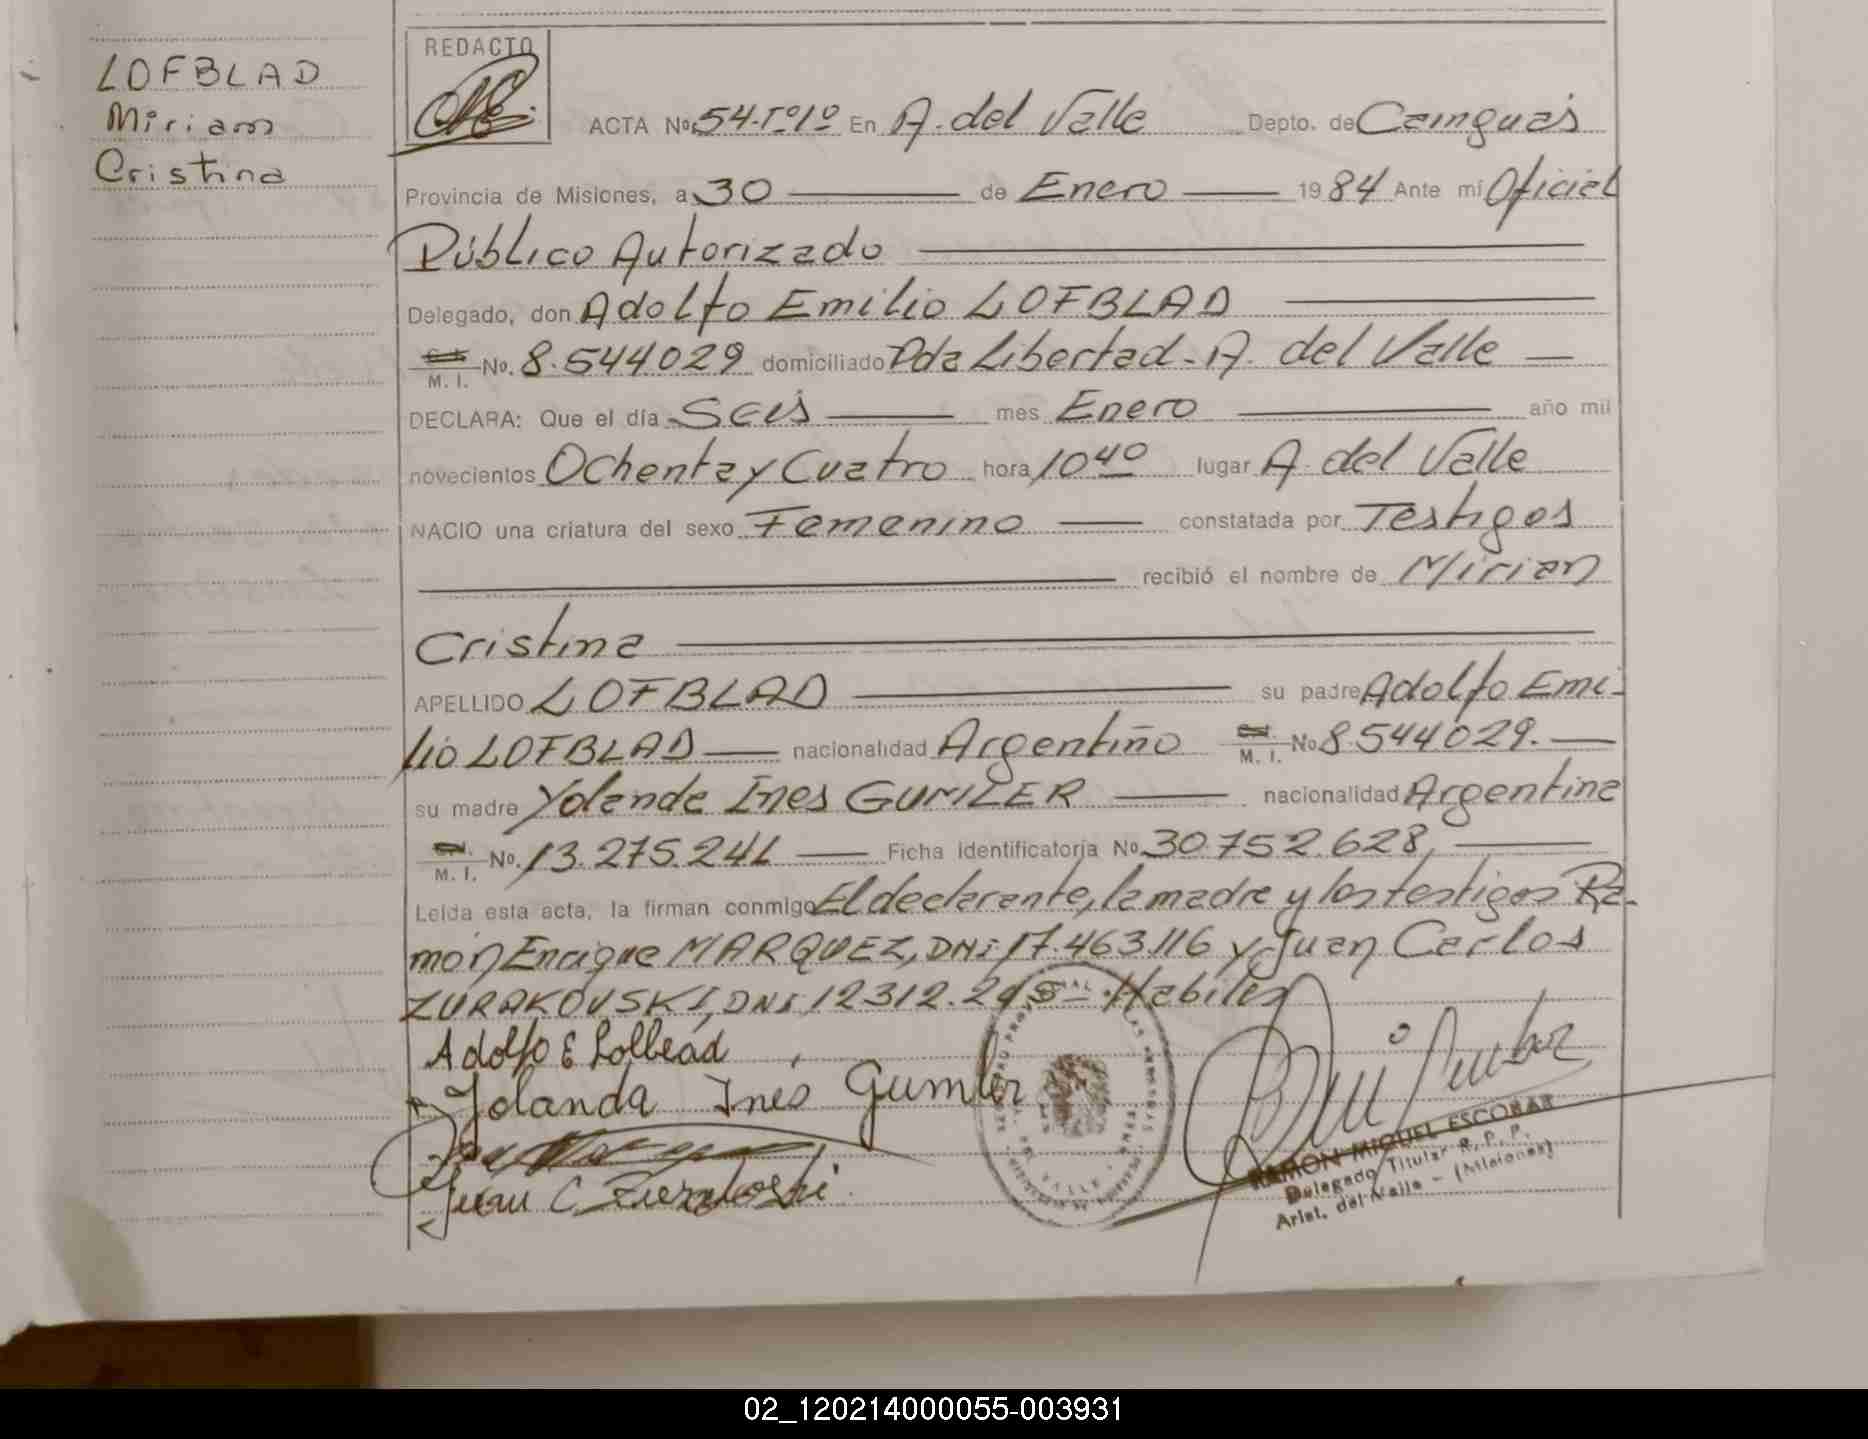 LOFBLAD
Miriam
Cristina
REDACTO
ACTA No. 54-Tº1º En A. del Valle Depto. de Cainguás
Provincia de Misiones, a 30 de Enero 1984 Ante mí Oficial
Público Autorizado
Delegado, don Adolfo Emilio LOFBLAD
M. I. No. 8.544029 domiciliado Pda Libertad - A. del Valle
DECLARA: Que el día Seis mes Enero año mil
novecientos Ochenta y Cuatro hora 10 40 lugar A. del Valle
NACIO una criatura del sexo Femenino constatada por Testigos
recibió el nombre de Mirian
Cristina
APELLIDO LOFBLAD su padre Adolfo Emi-
lio LOFBLAD nacionalidad Argentino M. I. No 8.544029.
su madre Yolanda Ines GUMLER nacionalidad Argentina
M. I. No. 13.275.241 Ficha identificatoria No 30.752.628,
Leída esta acta, la firman conmigo El declarante, la madre y los testigos Ra-
món Enrique MARQUEZ, DNI 17.463.116 y Juan Carlos
ZURAKOVSKI, DNI 12312. - Habiles
Adolfo E Lofblad
Yolanda Inés Gumler
Juan C
RAMON MIGUEL ESCOBAR
Delegado Titular R. P. P.
Arist. del Valle - (Misiones)
02_120214000055-003931